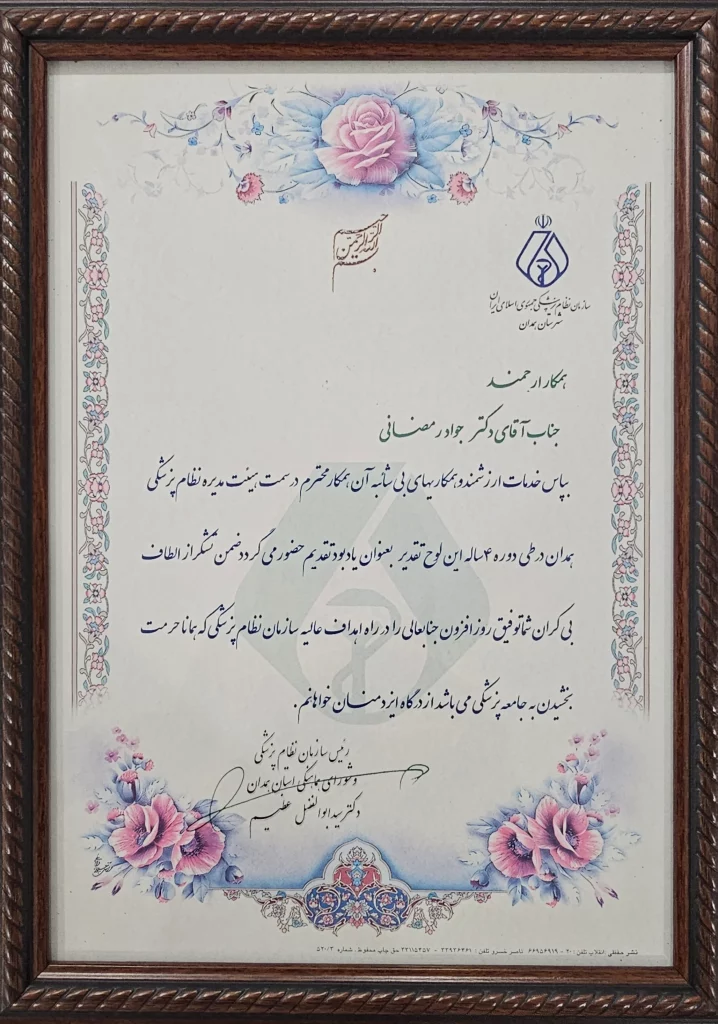 بسم الله الرحمن الرحیم
سازمان نظام پزشکی جمهوری اسلامی ایران
شهرستان همدان
همکار ارجمند
جناب آقای دکتر جواد رمضانی
بپاس خدمات ارزشمند و همکاریهای بی شائبه آن همکار محترم در سمت هیئت مدیره نظام پزشکی
همدان در طی دوره ۴ ساله این لوح تقدیر بعنوان یادبود تقدیم حضور می گردد ضمن تشکر از الطاف
بی کران شما توفیق روز افزون جنابعالی را در راه اهداف عالیه سازمان نظام پزشکی که همانا حرمت
بخشیدن به جامعه پزشکی می باشد از درگاه ایزد منان خواهانم.
رئیس سازمان نظام پزشکی
و شورای هماهنگی استان همدان
دکتر سید ابوالفضل عظیم
نشر حقیقی: انقلاب تلفن: ۲۰ - ۶۶۹۵۶۹۱۹ ناصر خسرو تلفن: ۳۳۹۲۶۴۶۱ - ۳۳۱۱۵۴۵۷ حق چاپ محفوظ. شماره ۵۲۰/۳